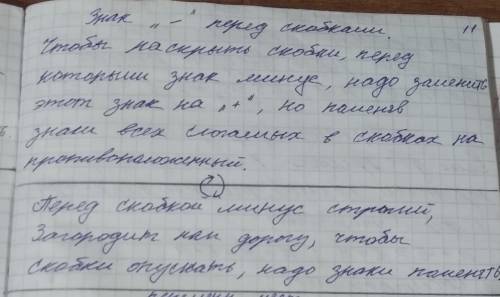 Знак „-“ перед скобками.
11
Чтобы раскрыть скобки, перед
которыми знак минус, надо заменить
этот знак на „+“, но поменяв
знаки всех слогаемых в скобках на
противоположенный.
Перед скобкой минус строгий,
Загородит нам дорогу, чтобы
скобки опускать, надо знаки поменять